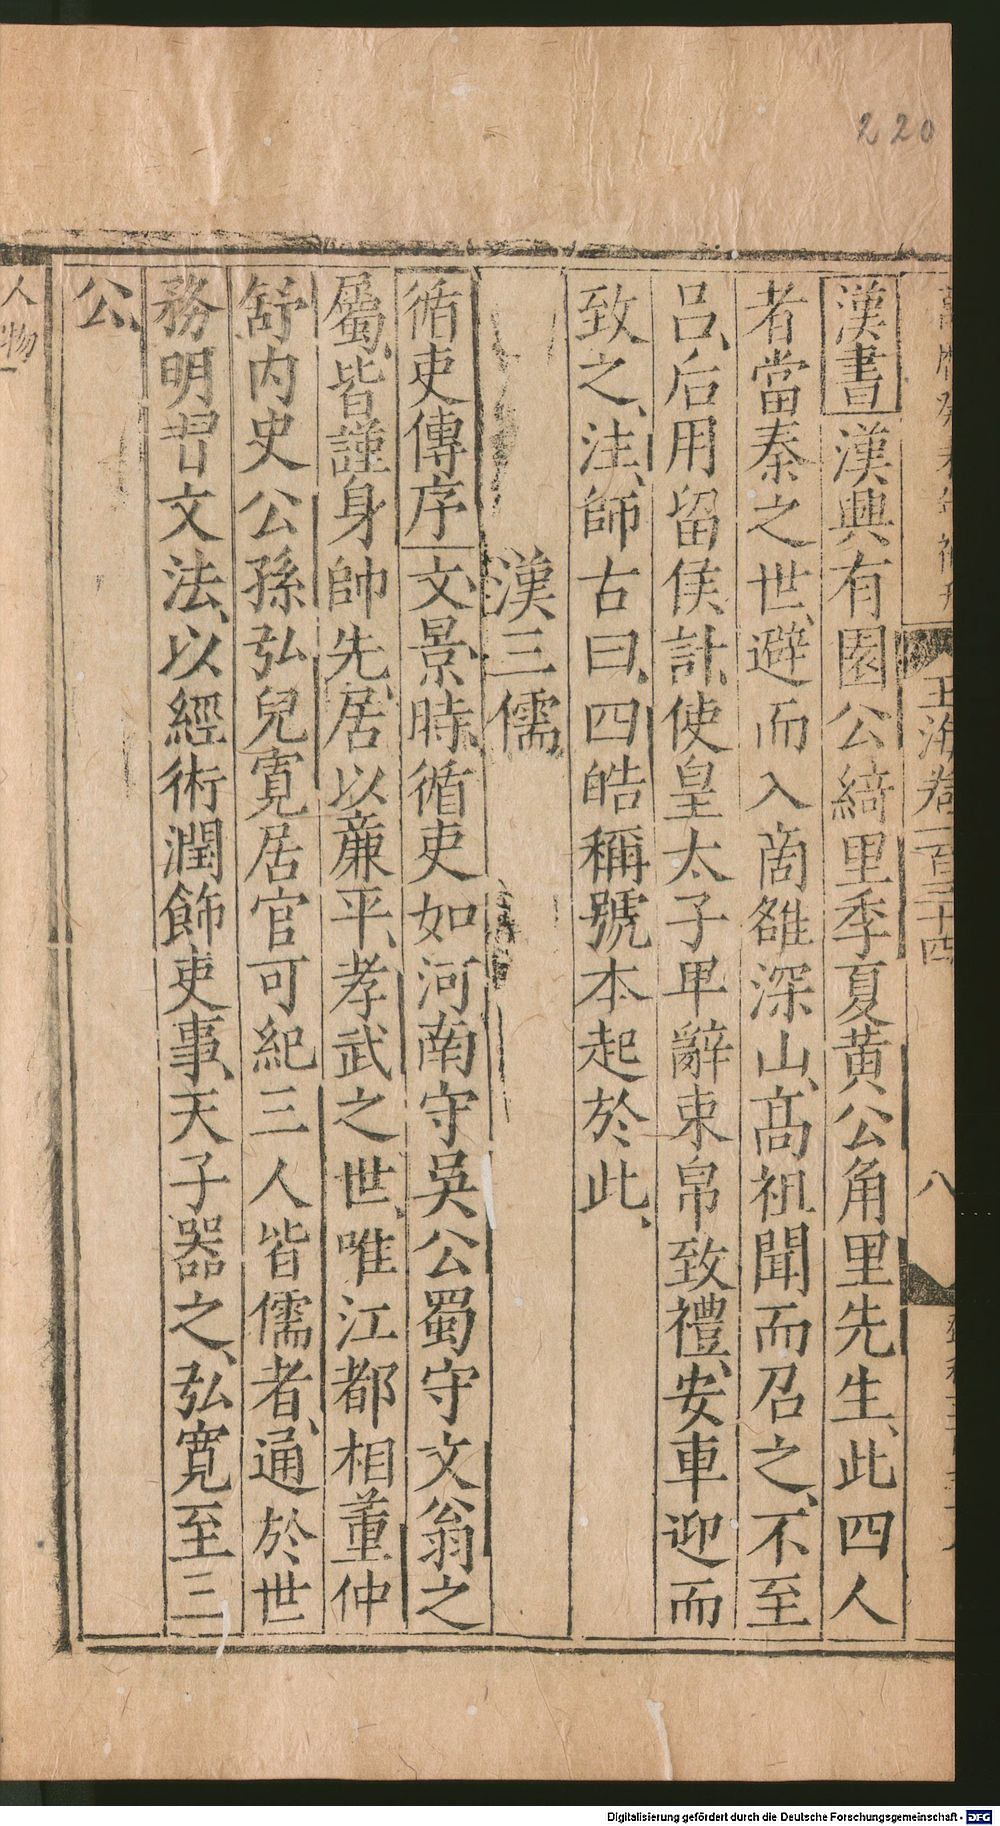 220
玉海卷一百三十四
八
漢書漢興有園公綺里季夏黃公角里先生、此四人
者當秦之世、避而入商雒深山、高祖聞而召之、不至
呂、后用留侯計、使皇太子卑辭束帛致禮、安車迎而
致之、注、師古曰、四皓稱號本起於此、
漢三儒
循吏傳序文、景時、循吏如河南守吳公蜀守文翁之
屬、皆謹身帥先、居以廉平、孝武之世、唯江都相董仲
舒內史公孫弘兒寬居官可紀三人皆儒者、通於世
務明習文法、以經術潤飾吏事、天子器之、弘寬至三
公、
人物
Digitalisierung gefördert durch die Deutsche Forschungsgemeinschaft - DFG